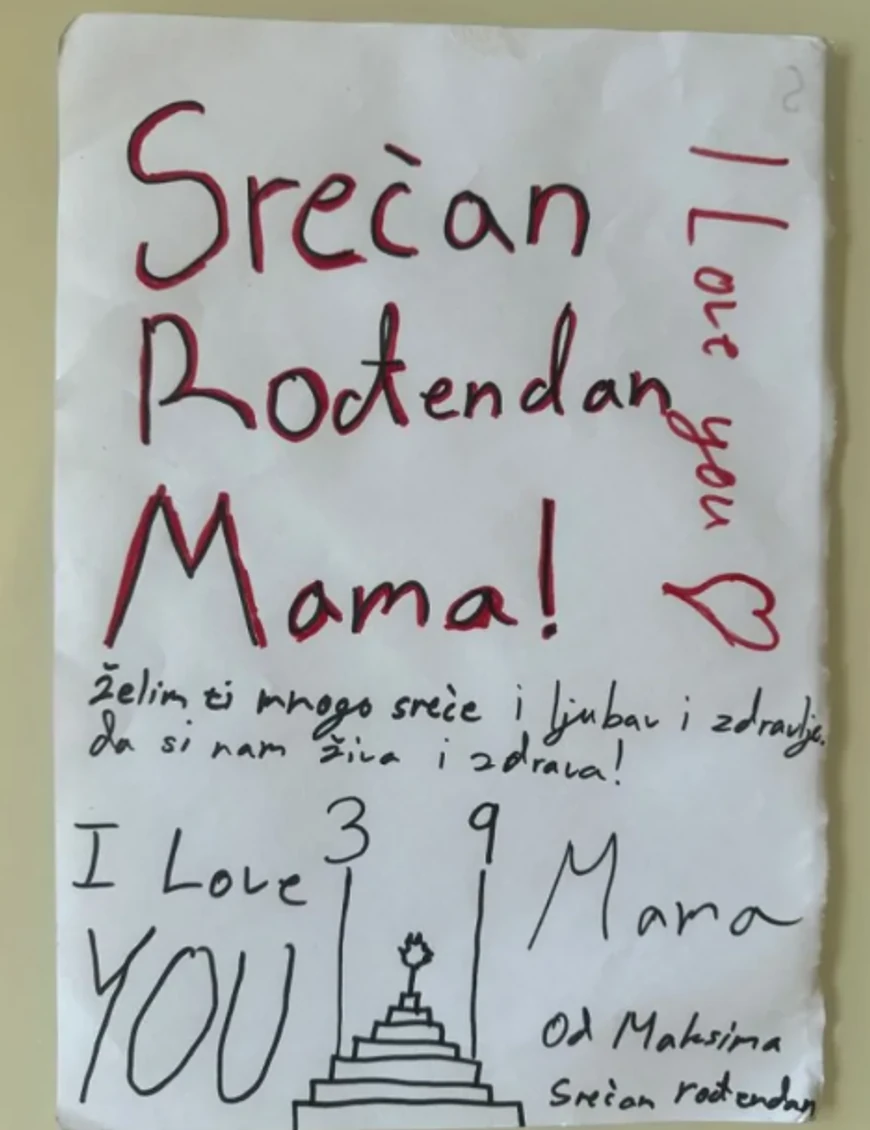 Srećan
Rođendan
Mama!
I Love you
želim ti mnogo sreće i ljubav i zdravlje.
da si nam živa i zdrava!
I Love
YOU
3 9
Mama
Od Maksima
Srećan rođendan